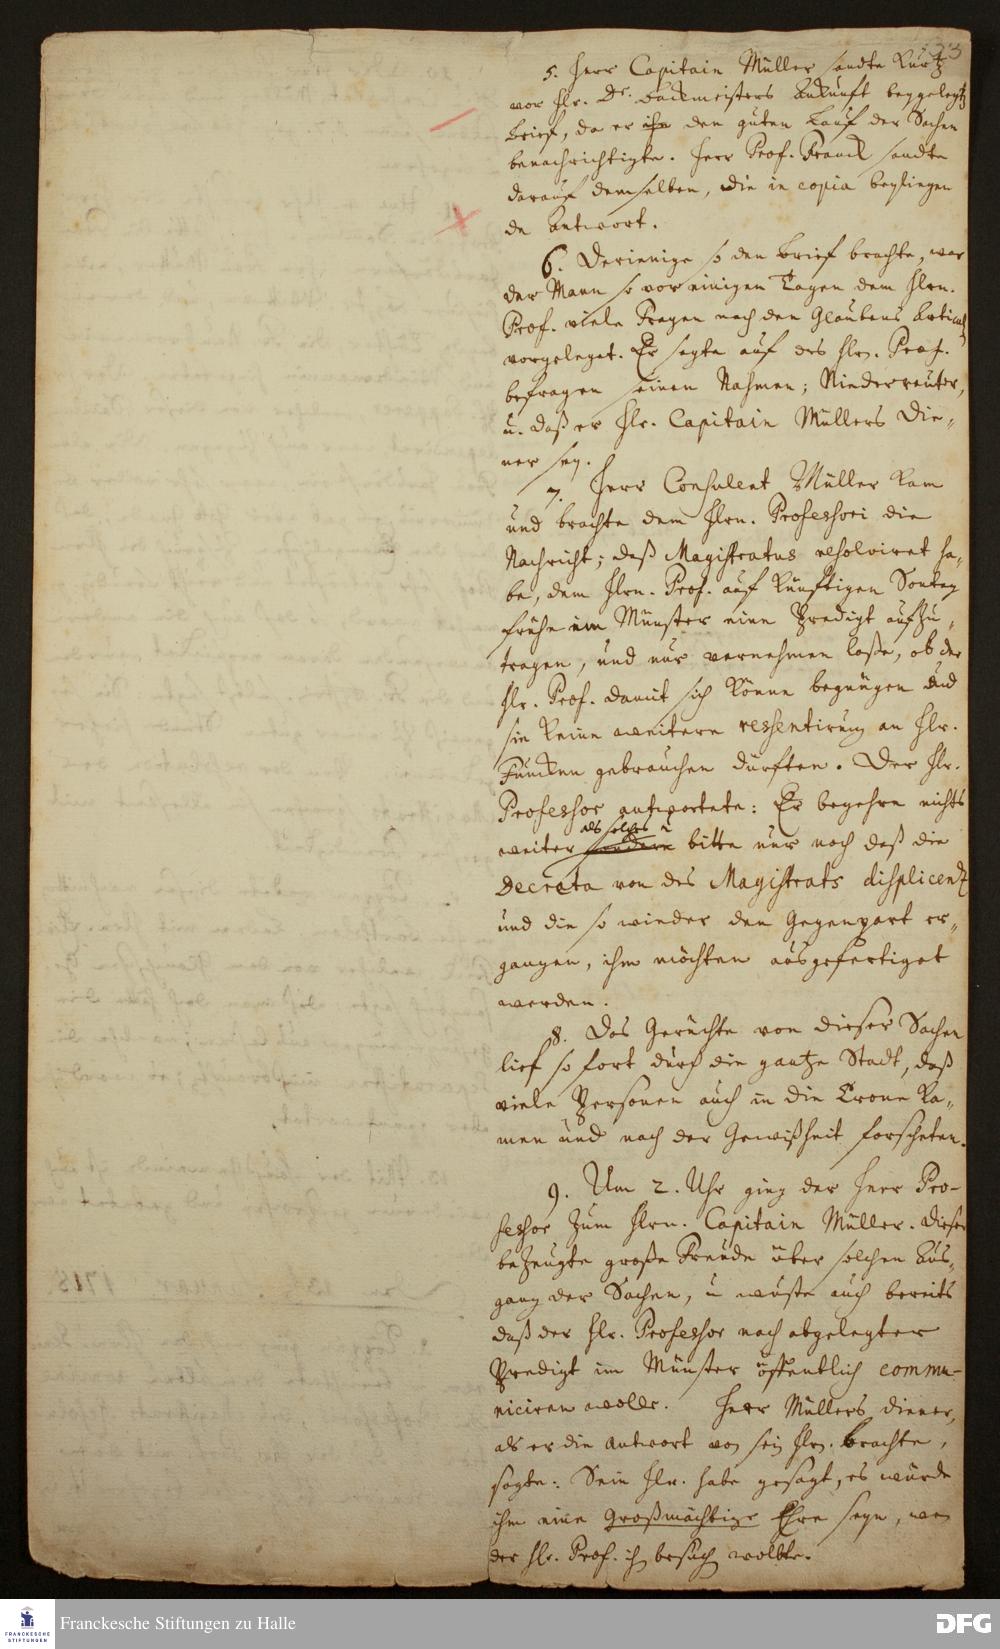 133
5. Herr Capitain Müller sandte kurtz
vor Hr. Dr. Hackmeisters Ankunft beygelegt
Brief, da er ihn den guten Lauf der Sachen
benachrichtigte. Herr Prof. Franck sandte
darauf demselben, die in copia beyliegen
de Antwort.
6. Derienige so den Brief brachte, war
der Mann so vor einigen Tagen dem Hrn.
Prof. viele Fragen nach den Glaubens Articul
vorgeleget. Er sagte auf des Hrn. Prof.
befragen seinen Nahmen; Niederreuter,
u. daß er Hr. Capitain Müllers Die-
ner sey.
7. Herr Consulent Müller kam
und brachte dem Hrn. Professori die
Nachricht; daß Magistratus resolviret ha-
be, dem Hrn. Prof. auf künftigen Sontag
frühe im Münster eine Predigt aufzu-
tragen, und nur vernehmen laße, ob der
Hr. Prof. damit sich könne begnügen und
sie keine weitere ressentirung an Hr.
Funcken gebrauchen dürften. Der Hr.
Professor antwortete: Er begehre nichts
als solches u
weiter sondern bitte nur noch daß die
Decreta von des Magistrats displicentz
und die so wieder den Gegenpart er-
gangen, ihm möchten ausgefertiget
werden.
8. Das Gerüchte von dieser Sachen
lief so fort durch die gantze Stadt, daß
viele Personen auch in die Crone ka-
men und nach der Gewißheit forscheten.
9. Um 2. Uhr ging der Herr Pro-
fessor zum Hrn. Capitain Müller. Dieser
bezeugte große Freude über solchen Aus-
gang der Sachen, u wuste auch bereits
daß der Hr. Professor nach abgelegter
Predigt im Münster öffentlich commu-
niciren wolle. Herr Müllers diener,
als er die Antwort von sein Hrn. brachte,
sagte: Sein Hr. habe gesagt, es würde
ihm eine großmächtige Ehre seyn, wen
der Hr. Prof. ihn besuchen wolte.
FRANCKESCHE
STIFTUNGEN
Franckesche Stiftungen zu Halle
DFG